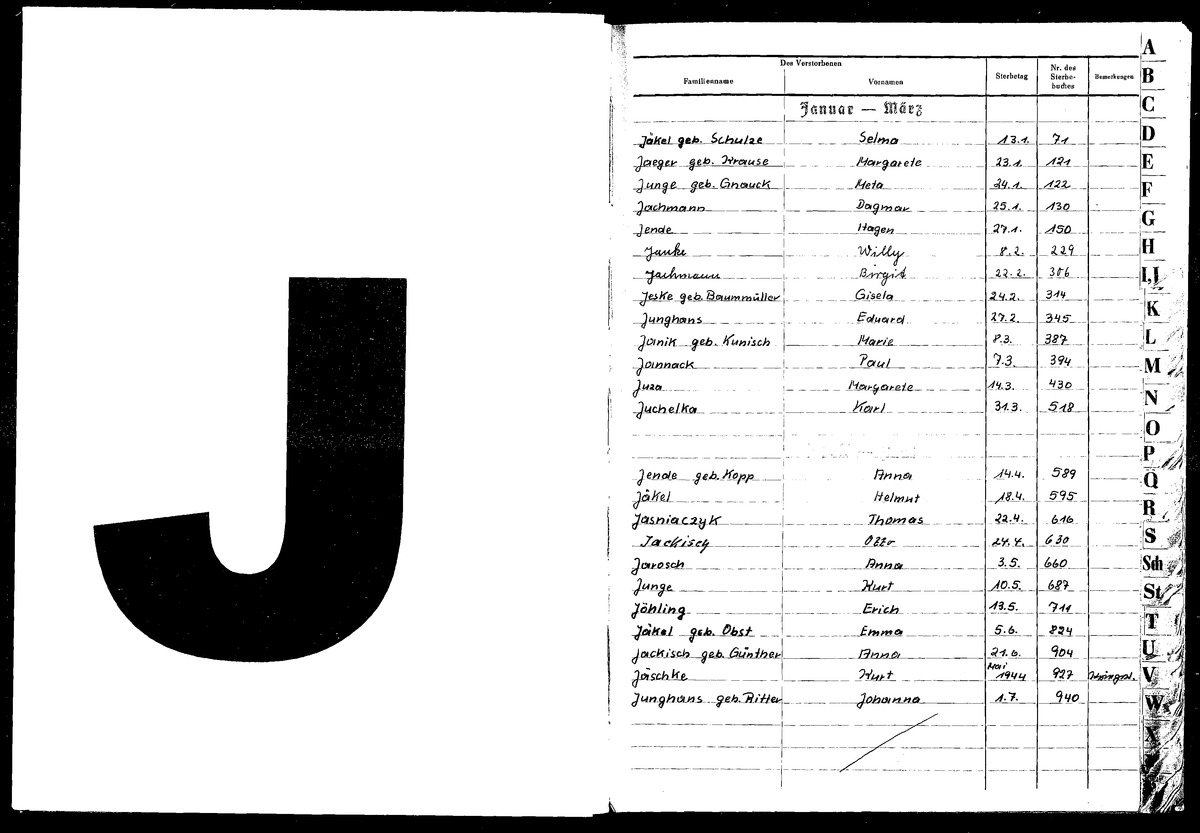 J
Des Verstorbenen
Familienname Vornamen Sterbetag Nr. des Sterbe-buches Bemerkungen
Januar — März
Jäkel geb. Schulze Selma 13.1. 71
Jaeger geb. Krause Margarete 23.1. 121
Junge geb. Gnauck Meta 24.1. 122
Jachmann Dagmar 25.1. 130
Jende Hagen 27.1. 150
Janke Willy 8.2. 229
Jachmann Birgit 22.2. 306
Jeske geb. Baummüller Gisela 24.2. 314
Junghans Eduard 27.2. 345
Janik geb. Kunisch Marie 8.3. 387
Jannack Paul 7.3. 394
Juza Margarete 14.3. 430
Juchelka Karl 31.3. 518
Jende geb. Kopp Anna 14.4. 589
Jäkel Helmut 18.4. 595
Jasniaczyk Thomas 22.4. 616
Jackisch Otto 24.4. 630
Jarosch Anna 3.5. 660
Junge Kurt 10.5. 687
Jöhling Erich 13.5. 711
Jäkel geb. Obst Emma 5.6. 824
Jackisch geb. Günther Anna 21.6. 904
Jäschke Kurt Mai 1944 927
Junghans geb. Ritter Johanna 1.7. 940
A
B
C
D
E
F
G
H
I,J
K
L
M
N
O
P
Q
R
S
Sch
St
T
U
V
W
X